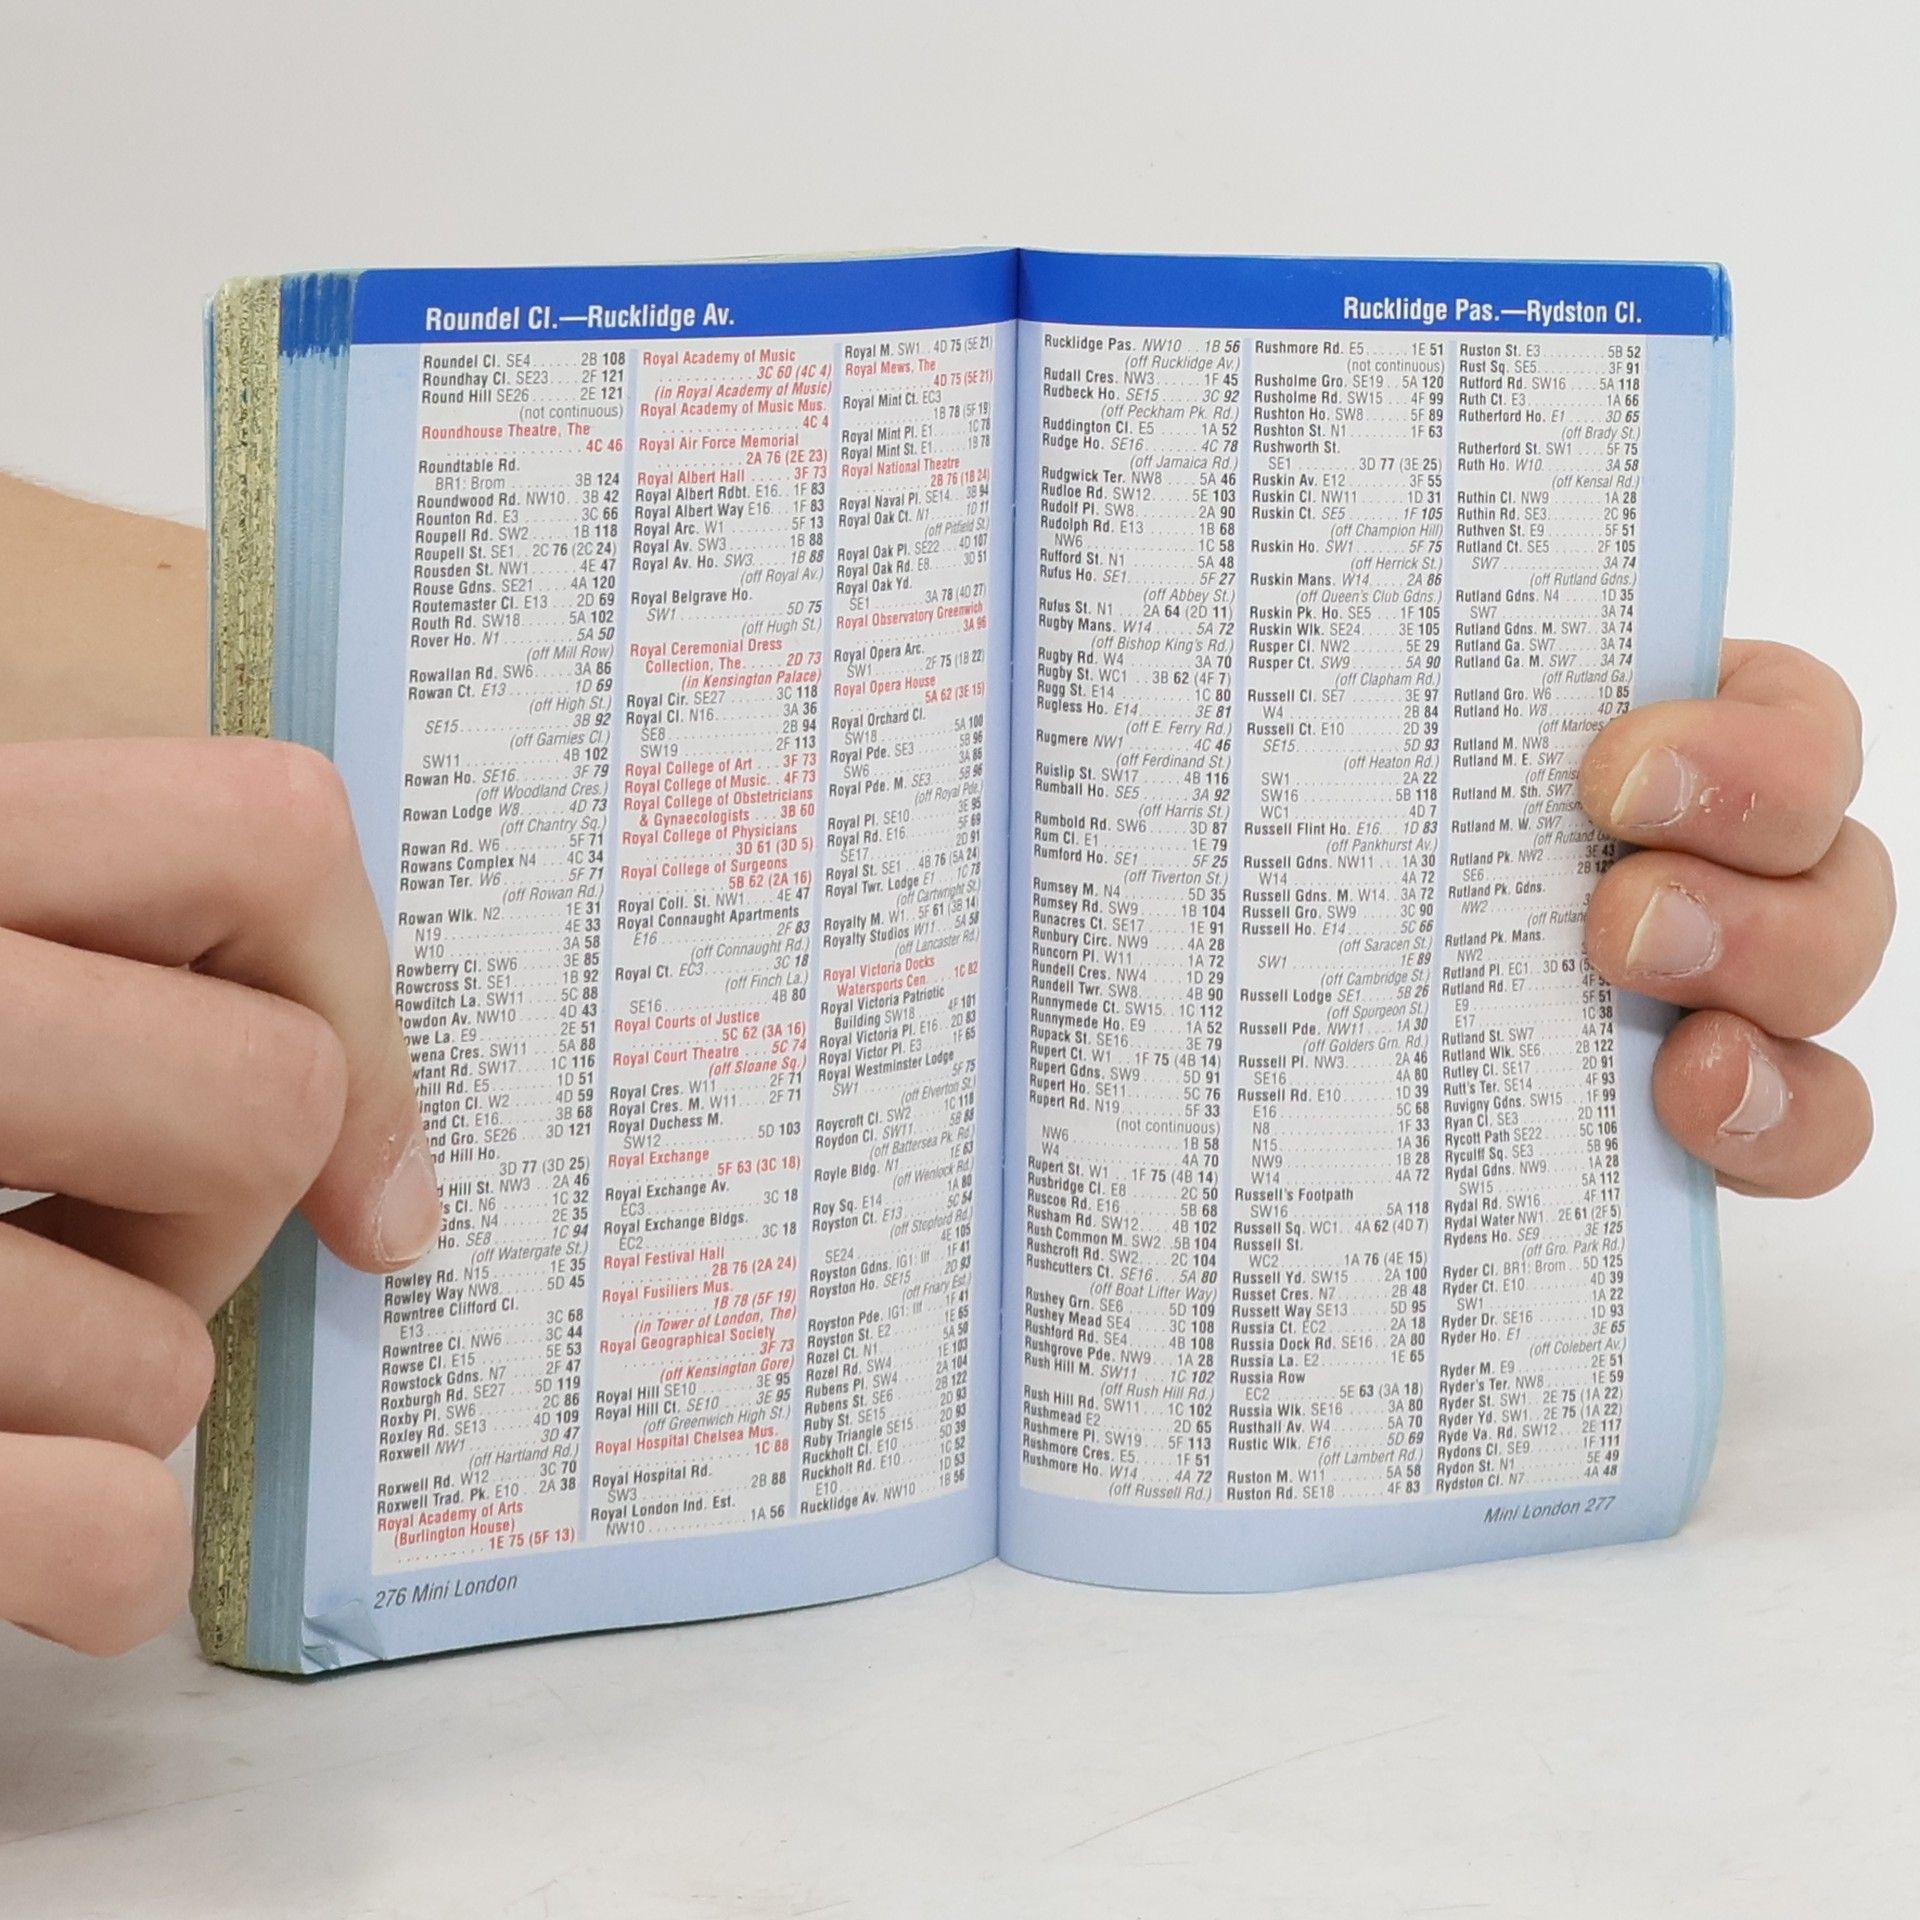 Roundel Cl.—Rucklidge Av.
Roundel Cl. SE4.......2B 108
Roundhay Cl. SE23....2F 121
Round Hill SE26.......2E 121
(not continuous)
Roundhouse Theatre, The
..................4C 46
Roundtable Rd.
BR1: Brom.........3B 124
Roundwood Rd. NW10...3B 42
Rounton Rd. E3........3C 66
Roupell Rd. SW2.......1B 118
Roupell St. SE1...2C 76 (2C 24)
Rousden St. NW1.......4E 47
Rouse Gdns. SE21.....4A 120
Routemaster Cl. E13....2D 69
Routh Rd. SW18.......5A 102
Rover Ho. N1..........5A 50
(off Mill Row)
Rowallan Rd. SW6......3A 86
Rowan Ct. E13.........1D 69
(off High St.)
SE15..............3B 92
(off Garnies Cl.)
SW11.............4B 102
Rowan Ho. SE16........3F 79
(off Woodland Cres.)
Rowan Lodge W8.......4D 73
(off Chantry Sq.)
Rowan Rd. W6.........5F 71
Rowans Complex N4....4C 34
Rowan Ter. W6.........5F 71
(off Rowan Rd.)
Rowan Wlk. N2.........1E 31
N19...............4E 33
W10...............3A 58
Rowberry Cl. SW6......3E 85
Rowcross St. SE1.......1B 92
Rowditch La. SW11.....5C 88
owdon Av. NW10......4D 43
owe La. E9...........2E 51
wena Cres. SW11......5A 88
wfant Rd. SW17......1C 116
hill Rd. E5...........1D 51
ington Cl. W2........4D 59
and Ct. E16..........3B 68
nd Gro. SE26.......3D 121
nd Hill Ho.
3D 77 (3D 25)
Hill St. NW3...2A 46
s Cl. N6..........1C 32
Gdns. N4.........2E 35
Ho. SE8..........1C 94
(off Watergate St.)
Rowley Rd. N15........1E 35
Rowley Way NW8.......5D 45
Rowntree Clifford Cl.
E13...............3C 68
Rowntree Cl. NW6......3C 44
Rowse Cl. E15.........5E 53
Rowstock Gdns. N7.....2F 47
Roxburgh Rd. SE27....5D 119
Roxby Pl. SW6.........2C 86
Roxley Rd. SE13......4D 109
Roxwell NW1..........3D 47
(off Hartland Rd.)
Roxwell Rd. W12.......3C 70
Roxwell Trad. Pk. E10...2A 38
Royal Academy of Arts
(Burlington House)
..........1E 75 (5F 13)
Royal Academy of Music
..........3C 60 (4C 4)
(in Royal Academy of Music)
Royal Academy of Music Mus.
..................4C 4
Royal Air Force Memorial
..........2A 76 (2E 23)
Royal Albert Hall.......3F 73
Royal Albert Rdbt. E16...1F 83
Royal Albert Way E16....1F 83
Royal Arc. W1..........5F 13
Royal Av. SW3..........1B 88
Royal Av. Ho. SW3......1B 88
(off Royal Av.)
Royal Belgrave Ho.
SW1...............5D 75
(off Hugh St.)
Royal Ceremonial Dress
Collection, The......2D 73
(in Kensington Palace)
Royal Cir. SE27.......3C 118
Royal Cl. N16..........3A 36
SE8...............2B 94
SW19.............2F 113
Royal College of Art....3F 73
Royal College of Music..4F 73
Royal College of Obstetricians
& Gynaecologists....3B 60
Royal College of Physicians
..........3D 61 (3D 5)
Royal College of Surgeons
..........5B 62 (2A 16)
Royal Coll. St. NW1.....4E 47
Royal Connaught Apartments
E16...............2F 83
(off Connaught Rd.)
Royal Ct. EC3..........3C 18
(off Finch La.)
SE16..............4B 80
Royal Courts of Justice
..........5C 62 (3A 16)
Royal Court Theatre....5C 74
(off Sloane Sq.)
Royal Cres. W11........2F 71
Royal Cres. M. W11.....2F 71
Royal Duchess M.
SW12.............5D 103
Royal Exchange
..........5F 63 (3C 18)
Royal Exchange Av.
EC3...............3C 18
Royal Exchange Bldgs.
EC2...............3C 18
Royal Festival Hall
..........2B 76 (2A 24)
Royal Fusiliers Mus.
..........1B 78 (5F 19)
(in Tower of London, The)
Royal Geographical Society
..................3F 73
(off Kensington Gore)
Royal Hill SE10.........3E 95
Royal Hill Ct. SE10......3E 95
(off Greenwich High St.)
Royal Hospital Chelsea Mus.
..................1C 88
Royal Hospital Rd.
SW3...............2B 88
Royal London Ind. Est.
NW10..............1A 56
Royal M. SW1...4D 75 (5E 21)
Royal Mews, The
..........4D 75 (5E 21)
Royal Mint Ct. EC3
..........1B 78 (5F 19)
Royal Mint Pl. E1.......1C 78
Royal Mint St. E1.......1B 78
Royal National Theatre
..........2B 76 (1B 24)
Royal Naval Pl. SE14....3B 94
Royal Oak Ct. N1.......1D 11
(off Pitfield St.)
Royal Oak Pl. SE22....4D 107
Royal Oak Rd. E8.......3D 51
Royal Oak Yd.
SE1.......3A 78 (4D 27)
Royal Observatory Greenwich
..................3A 96
Royal Opera Arc.
SW1.......2F 75 (1B 22)
Royal Opera House
..........5A 62 (3E 15)
Royal Orchard Cl.
SW18.............5A 100
Royal Pde. SE3.........5B 96
SW6...............3A 86
Royal Pde. M. SE3......5B 96
(off Royal Pde.)
Royal Pl. SE10..........3E 95
Royal Rd. E16..........5F 69
SE17..............2D 91
Royal St. SE1...4B 76 (5A 24)
Royal Twr. Lodge E1....1C 78
(off Cartwright St.)
Royalty M. W1...5F 61 (3B 14)
Royalty Studios W11....5A 58
(off Lancaster Rd.)
Royal Victoria Docks
Watersports Cen.....1C 82
Royal Victoria Patriotic
Building SW18.....4F 101
Royal Victoria Pl. E16...2D 83
Royal Victor Pl. E3......1F 65
Royal Westminster Lodge
SW1...............5F 75
(off Elverton St.)
Roycroft Cl. SW2......1C 118
Roydon Cl. SW11.......5B 88
(off Battersea Pk. Rd.)
Royle Bldg. N1.........1E 63
(off Wenlock Rd.)
Roy Sq. E14............1A 80
Royston Ct. E13........5C 54
(off Stopford Rd.)
SE24.............4E 105
Royston Gdns. IG1: Ilf...1F 41
Royston Ho. SE15......2D 93
(off Friary Est.)
Royston Pde. IG1: Ilf....1F 41
Royston St. E2..........1E 65
Rozel Ct. N1............5A 50
Rozel Rd. SW4........1E 103
Rubens Pl. SW4.......2A 104
Rubens St. SE6.......2B 122
Ruby St. SE15..........2D 93
Ruby Triangle SE15.....2D 93
Ruckholt Cl. E10........5D 39
Ruckholt Rd. E10.......1C 52
E10...............1D 53
Rucklidge Av. NW10....1B 56
276 Mini London
Rucklidge Pas.—Rydston Cl.
Rucklidge Pas. NW10...1B 56
(off Rucklidge Av.)
Rudall Cres. NW3.......1F 45
Rudbeck Ho. SE15......3C 92
(off Peckham Pk. Rd.)
Ruddington Cl. E5......1A 52
Rudge Ho. SE16........4C 78
(off Jamaica Rd.)
Rudgwick Ter. NW8.....5A 46
Rudloe Rd. SW12.....5E 103
Rudolf Pl. SW8.........2A 90
Rudolph Rd. E13.......1B 68
NW6...............1C 58
Rufford St. N1..........5A 48
Rufus Ho. SE1..........5F 27
(off Abbey St.)
Rufus St. N1....2A 64 (2D 11)
Rugby Mans. W14......5A 72
(off Bishop King's Rd.)
Rugby Rd. W4..........3A 70
Rugby St. WC1...3B 62 (4F 7)
Rugg St. E14...........1C 80
Rugless Ho. E14........3E 81
(off E. Ferry Rd.)
Rugmere NW1.........4C 46
(off Ferdinand St.)
Ruislip St. SW17......4B 116
Rumball Ho. SE5.......3A 92
(off Harris St.)
Rumbold Rd. SW6......3D 87
Rum Cl. E1.............1E 79
Rumford Ho. SE1.......5F 25
(off Tiverton St.)
Rumsey M. N4.........5D 35
Rumsey Rd. SW9.....1B 104
Runacres Ct. SE17......1E 91
Runbury Circ. NW9.....4A 28
Runcorn Pl. W11.......1A 72
Rundell Cres. NW4.....1D 29
Rundell Twr. SW8......4B 90
Runnymede Ct. SW15..1C 112
Runnymede Ho. E9.....1A 52
Rupack St. SE16.......3E 79
Rupert Ct. W1...1F 75 (4B 14)
Rupert Gdns. SW9......5D 91
Rupert Ho. SE11.......5C 76
Rupert Rd. N19.........5F 33
(not continuous)
NW6...............1B 58
W4................4A 70
Rupert St. W1...1F 75 (4B 14)
Rusbridge Cl. E8.......2C 50
Ruscoe Rd. E16........5B 68
Rusham Rd. SW12....4B 102
Rush Common M. SW2..5B 104
Rushcroft Rd. SW2....2C 104
Rushcutters Ct. SE16...5A 80
(off Boat Lifter Way)
Rushey Grn. SE6......5D 109
Rushey Mead SE4.....3C 108
Rushford Rd. SE4.....4B 108
Rushgrove Pde. NW9...1A 28
Rush Hill M. SW11....1C 102
(off Rush Hill Rd.)
Rush Hill Rd. SW11...1C 102
Rushmead E2..........2D 65
Rushmere Pl. SW19...5F 113
Rushmore Cres. E5.....1F 51
Rushmore Ho. W14.....4A 72
(off Russell Rd.)
Rushmore Rd. E5.......1E 51
(not continuous)
Rusholme Gro. SE19...5A 120
Rusholme Rd. SW15....4F 99
Rushton Ho. SW8.......5F 89
Rushton St. N1.........1F 63
Rushworth St.
SE1.......3D 77 (3E 25)
Ruskin Av. E12.........3F 55
Ruskin Cl. NW11.......1D 31
Ruskin Ct. SE5........1F 105
(off Champion Hill)
Ruskin Ho. SW1........5F 75
(off Herrick St.)
Ruskin Mans. W14......2A 86
(off Queen's Club Gdns.)
Ruskin Pk. Ho. SE5....1F 105
Ruskin Wlk. SE24.....3E 105
Rusper Cl. NW2........5E 29
Rusper Ct. SW9........5A 90
(off Clapham Rd.)
Russell Cl. SE7.........3E 97
W4................2B 84
Russell Ct. E10.........2D 39
SE15..............5D 93
(off Heaton Rd.)
SW1...............2A 22
SW16.............5B 118
WC1...............4D 7
Russell Flint Ho. E16...1D 83
(off Pankhurst Av.)
Russell Gdns. NW11....1A 30
W14...............4A 72
Russell Gdns. M. W14...3A 72
Russell Gro. SW9.......3C 90
Russell Ho. E14.........5C 66
(off Saracen St.)
SW1...............1E 89
(off Cambridge St.)
Russell Lodge SE1......5B 26
(off Spurgeon St.)
Russell Pde. NW11.....1A 30
(off Golders Grn. Rd.)
Russell Pl. NW3........2A 46
SE16..............4A 80
Russell Rd. E10........1D 39
E16...............5C 68
N8................1F 33
N15...............1A 36
NW9...............1B 28
W14...............4A 72
Russell's Footpath
SW16.............5A 118
Russell Sq. WC1...4A 62 (4D 7)
Russell St.
WC2.......1A 76 (4E 15)
Russell Yd. SW15.....2A 100
Russet Cres. N7........2B 48
Russett Way SE13......5D 95
Russia Ct. EC2.........2A 18
Russia Dock Rd. SE16...2A 80
Russia La. E2...........1E 65
Russia Row
EC2.......5E 63 (3A 18)
Russia Wlk. SE16.......3A 80
Rusthall Av. W4........5A 70
Rustic Wlk. E16........5D 69
(off Lambert Rd.)
Ruston M. W11........5A 58
Ruston Rd. SE18.......4F 83
Ruston St. E3..........5B 52
Rust Sq. SE5..........3F 91
Rutford Rd. SW16.....5A 118
Ruth Ct. E3............1A 66
Rutherford Ho. E1......3D 65
(off Brady St.)
Rutherford St. SW1.....5F 75
Ruth Ho. W10..........3A 58
(off Kensal Rd.)
Ruthin Cl. NW9.........1A 28
Ruthin Rd. SE3.........2C 96
Ruthven St. E9.........5F 51
Rutland Ct. SE5.......2F 105
SW7...............3A 74
(off Rutland Gdns.)
Rutland Gdns. N4.......1D 35
SW7...............3A 74
Rutland Gdns. M. SW7..3A 74
Rutland Ga. SW7.......3A 74
Rutland Ga. M. SW7....3A 74
(off Rutland Ga.)
Rutland Gro. W6.......1D 85
Rutland Ho. W8........4D 73
(off Marloes
Rutland M. NW8
Rutland M. E. SW7
(off Ennis
Rutland M. Sth. SW7
(off Ennism
Rutland M. W. SW7
(off Rutland
Rutland Pk. NW2.......3E 43
SE6..............2B 122
Rutland Pk. Gdns.
NW2
(off Rutlan
Rutland Pk. Mans.
NW2
Rutland Pl. EC1...3D 63 (5
Rutland Rd. E7
E9................5F 51
E17...............1C 38
Rutland St. SW7.......4A 74
Rutland Wlk. SE6.....2B 122
Rutley Cl. SE17........2D 91
Rutt's Ter. SE14........4F 93
Ruvigny Gdns. SW15....1F 99
Ryan Cl. SE3.........2D 111
Rycott Path SE22.....5C 106
Ryculff Sq. SE3........5B 96
Rydal Gdns. NW9......1A 28
SW15.............5A 112
Rydal Rd. SW16......4F 117
Rydal Water NW1...2E 61 (2F 5)
Rydens Ho. SE9.......3E 125
(off Gro. Park Rd.)
Ryder Cl. BR1: Brom...5D 125
Ryder Ct. E10..........4D 39
SW1...............1A 22
Ryder Dr. SE16........1D 93
Ryder Ho. E1..........3E 65
(off Colebert Av.)
Ryder M. E9...........2E 51
Ryder's Ter. NW8.......1E 59
Ryder St. SW1...2E 75 (1A 22)
Ryder Yd. SW1...2E 75 (1A 22)
Ryde Va. Rd. SW12...2E 117
Rydons Cl. SE9.......1F 111
Rydon St. N1..........5E 49
Rydston Cl. N7........4A 48
Mini London 277